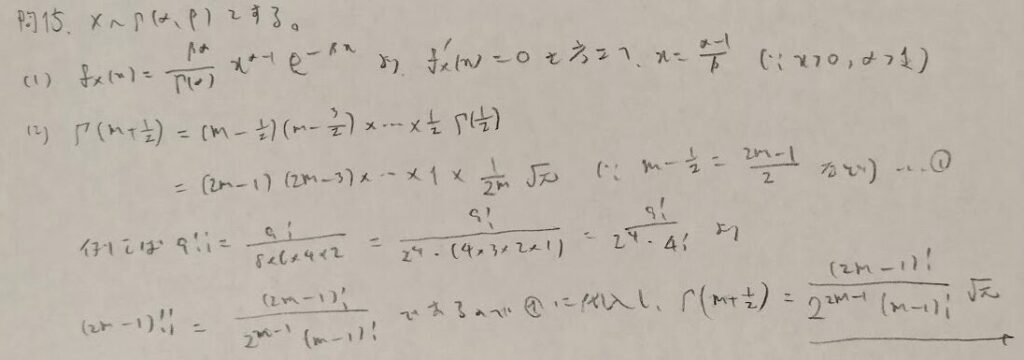 問15. X~Γ(α, β) とする。
(1) fx(x) = β^α/Γ(α) x^(α-1) e^(-βx) より, fx'(x) = 0 を考えて, x = (α-1)/β (∵ x>0, α>1)
(2) Γ(m+1/2) = (m-1/2)(m-3/2)×…×1/2 Γ(1/2)
= (2m-1)(2m-3)×…×1×1/2^m √π (∵ m-1/2 = (2m-1)/2 なので) …①
例えば 9!! = 9!/(8×6×4×2) = 9!/(2^4・(4×3×2×1)) = 9!/(2^4・4!) より
(2m-1)!! = (2m-1)!/(2^(m-1) (m-1)!) であるので ①に代入し, Γ(m+1/2) = (2m-1)!/(2^(2m-1) (m-1)!) √π